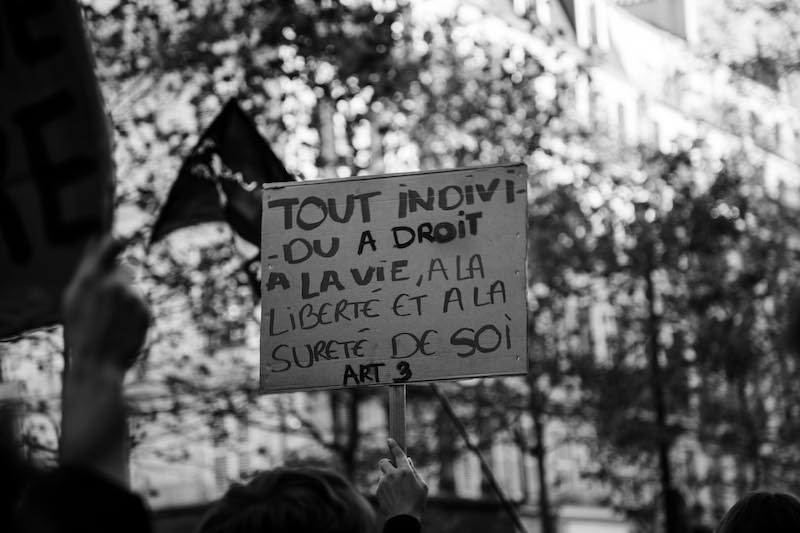 TOUT iNDiVi-
-DU A DROiT
A LA ViE, A LA
LiBERTÉ ET A LA
SURETÉ DE SOi
ART 3
RE